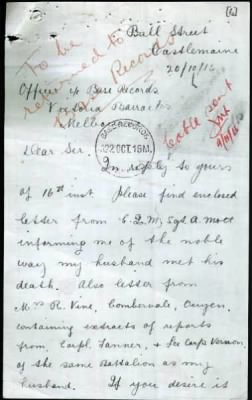 Bull Street
Castlemaine
20/10/16
To be
returned to
Base Records
Officer i/c Base Records
Victoria Barracks
Melbo
Cable sent
9/10/16
22 OCT 16
Dear Sir
In reply to yours
of 16th inst. Please find enclosed
letter from C.Q.M. Sgt. A. Mott
informing me of the noble
way my husband met his
death. Also letter from
Mrs R. Vine, Combervale,
containing extracts of reports
from Corpl. Tanner, & Lce Corp Vernon
of the same Battalion as my
husband. If you desire it